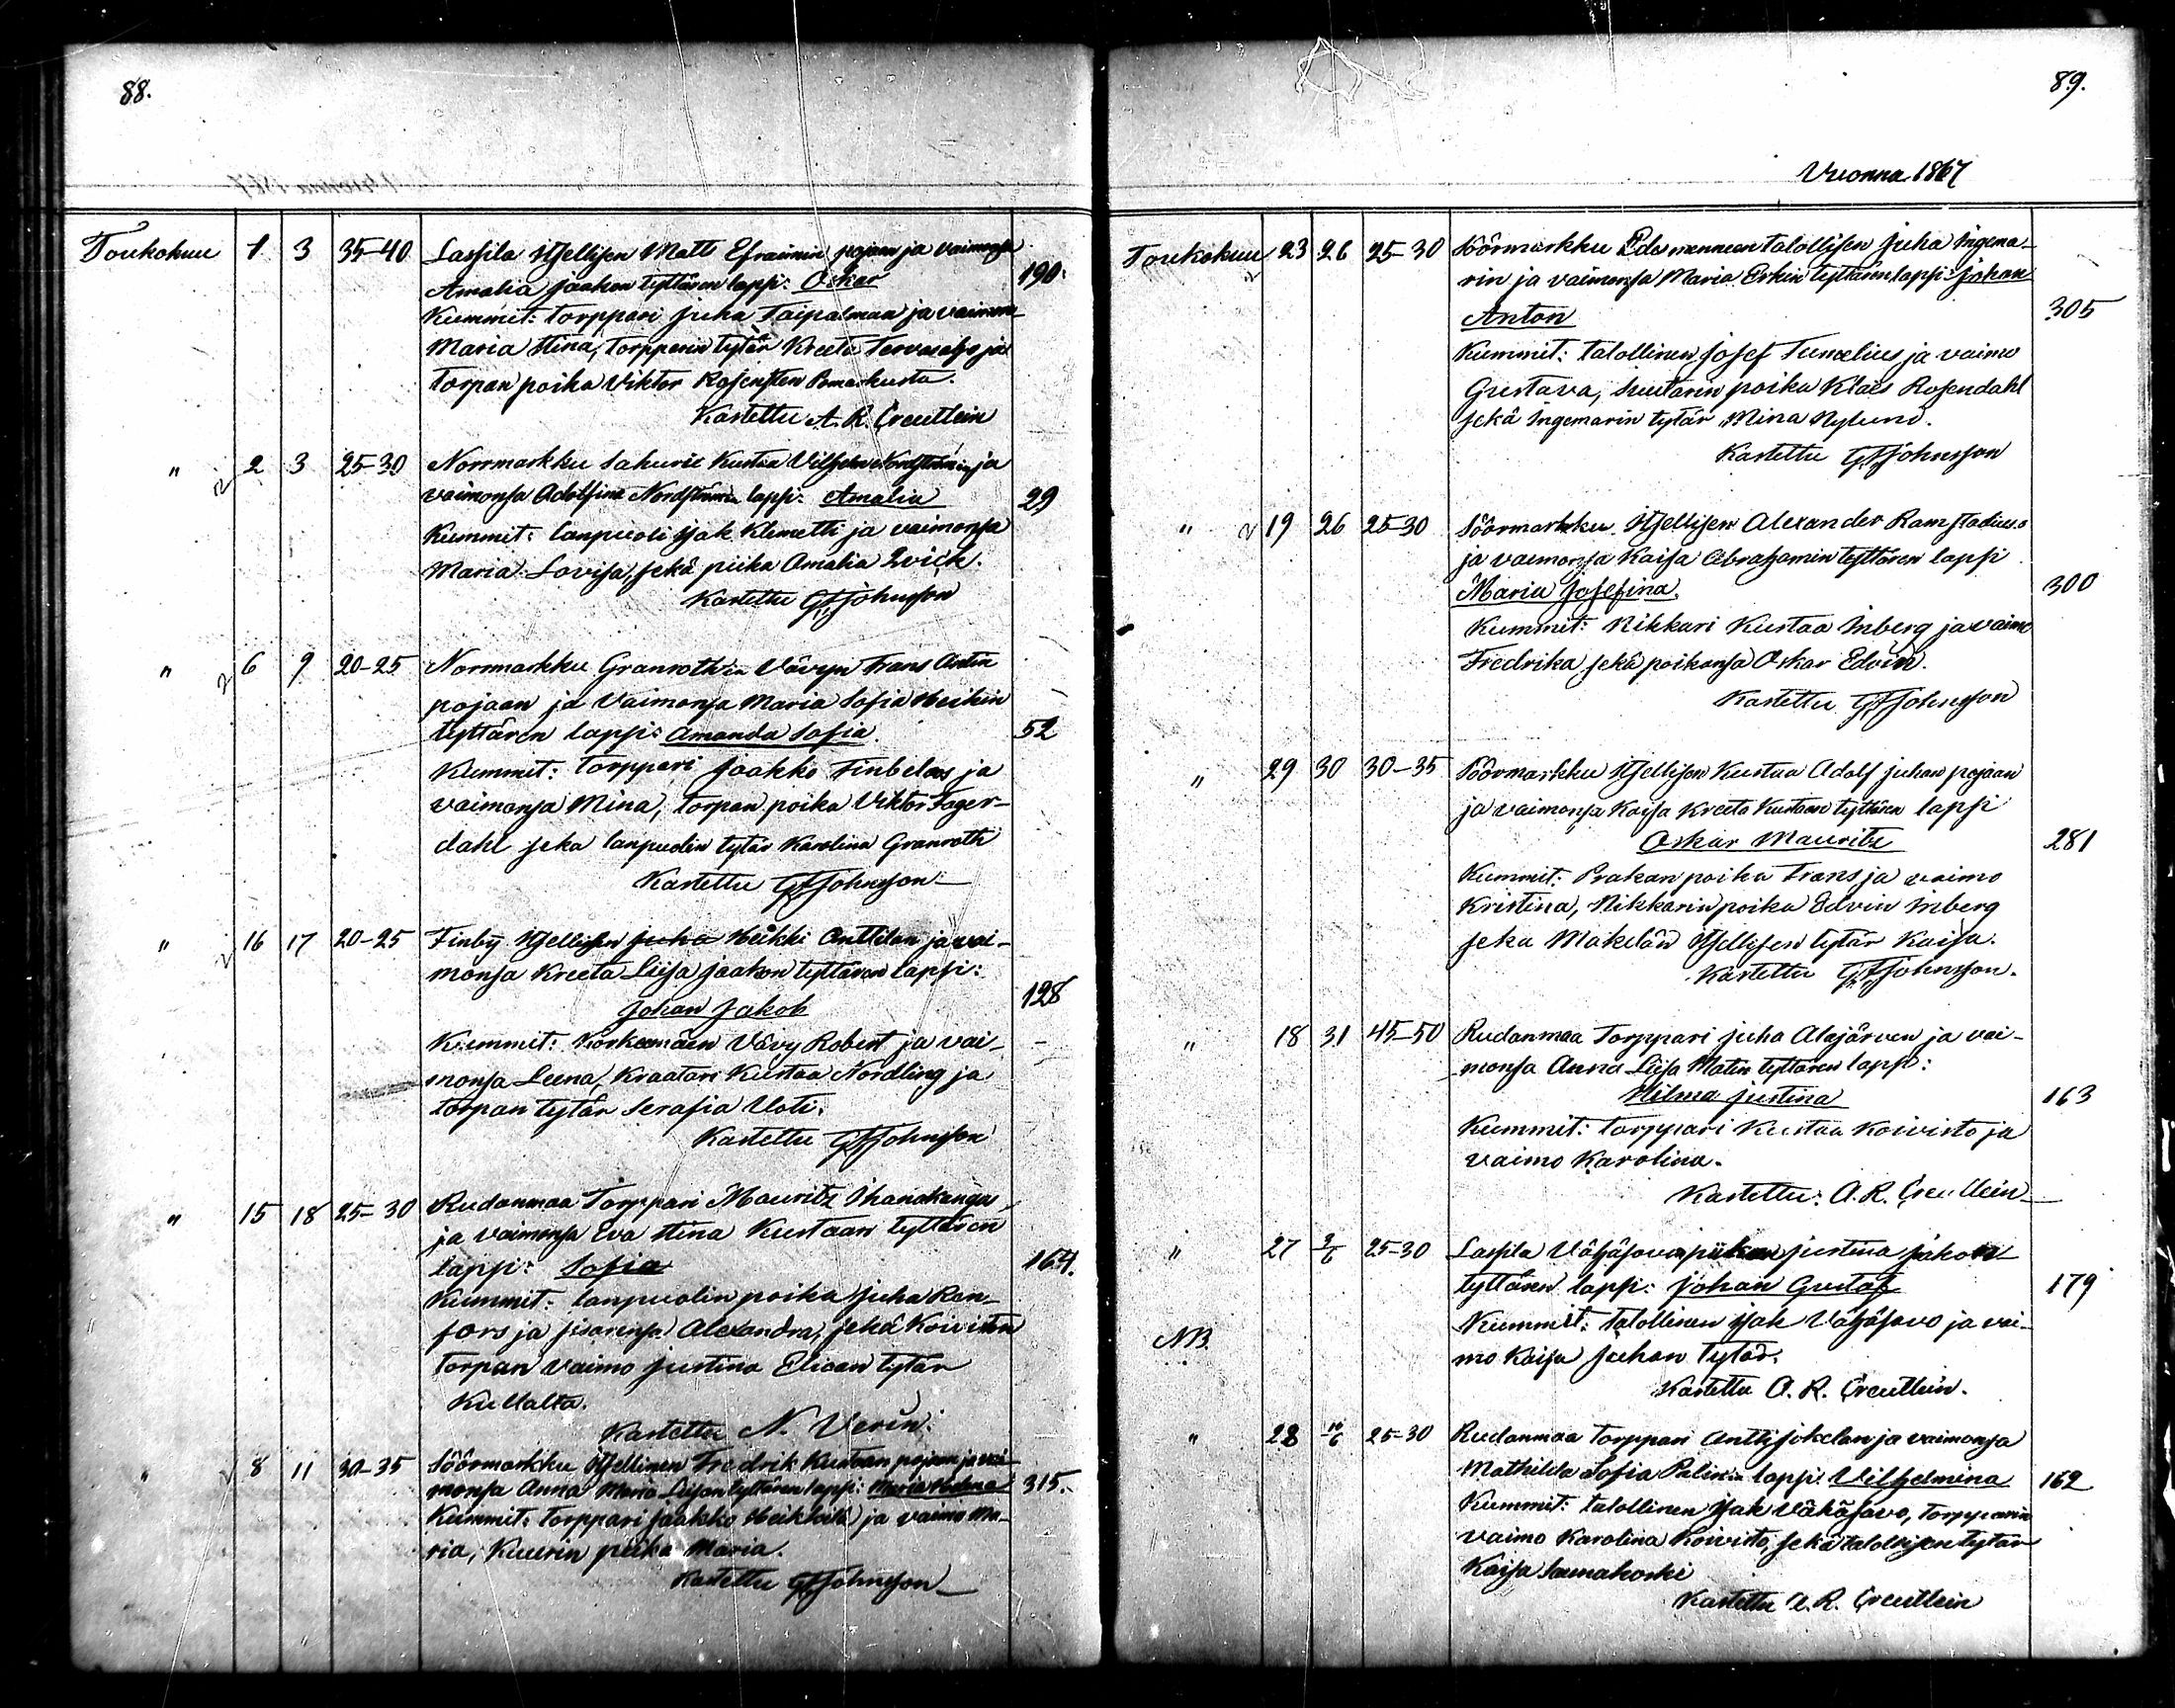 88.
Toukokuu 1 3 35-40 Lassila Itsellisen Matts Efraimin pojan ja vaimonsa
Amalia Jaakon tyttären lapsi: Oskar 190.
Kummit: torppari Juha Taipalmaa ja vaimonsa
Maria Stina, Torpparin tytär Kreeta Tervasalo ja
Torpan poika Viktor Rosensten Pomarkusta.
Kastettu A. R. Creutlein
" 2 3 25-30 Norrmarkku Sahurie Kustaa Vilhelm Nordströmin ja
vaimonsa Adolfina Nordströmin lapsi: Amalia 29
Kummit: lanpuoli Isak Klemetti ja vaimonsa
Maria Lovisa, sekä piika Amalia Qvick.
Kastettu GFJohnsson
" 6 9 20-25 Norrmarkku Granrothin Vävyn Frans Antin
pojaan ja Vaimonsa Maria Sofia Heikin
tyttären lapsi: Amanda Sofia. 52
Kummit: torppari Jaakko Finbelas ja
vaimonsa Mina, torpan poika Viktor Fager-
dahl seka lanpuolin tytär Karolina Granroth
Kastettu GFJohnsson
" 16 17 20-25 Finby Itsellisen Juha Heikki Anttilan ja vai-
monsa Kreeta Liisa Jaakon tyttären lapsi:
Johan Jakob 128
Kummit: Korkeemäen Vävy Robert ja vai-
monsa Leena, Kraatari Kustaa Nordling ja
torpan tytär Serafia Uoti.
Kastettu GFJohnsson
" 15 18 25-30 Rudanmaa Torppari Mauritz Ihanakangas
ja vaimonsa Eva Stina Kustaan tyttären
lapsi: Sofia 164.
Kummit: lanpuolin poika Juha Ran-
fors ja sisarensa Alexandra, sekä Koiviston
torpan vaimo Justina Elican tytär
Kullalta.
Kastettu N. Verin.
" 8 11 30-35 Söörmarkku Itsellinen Fredrik Kustaan pojan ja vai-
monsa Anna Maria Liisan tyttären lapsi: Maria 315.
Kummit: Torppari Jaakko Heikkilä ja vaimo Ma-
ria, Kuurin piika Maria.
Kastettu GFJohnsson
89.
Vuonna 1867
Toukokuu 23 26 25-30 Söörmarkku talollisen Juha Ingema-
rin ja vaimonsa Maria Erkin tyttären lapsi: Johan
Anton 305
Kummit: talollinen Josef Tunelius ja vaimo
Gustava, suutarin poika Klaes Rosendahl
sekä Ingemarin tytär Mina Nylund.
Kastettu GFJohnsson
" 19 26 25-30 Söörmarkku Itsellisen Alexander Ramstadius
ja vaimonsa Kaisa Abrahamin tyttären lapsi
Maria Josefina. 300
Kummit: Nikkari Kustaa Inberg ja vaimo
Fredrika sekä poikansa Oskar Edvin.
Kastettu GFJohnsson
" 29 30 30-35 Söörmarkku Itsellisen Kustaa Adolf Juhan pojaan
ja vaimonsa Kaisa Kreeta Kustaan tyttären lapsi
Oskar Mauritz 281
Kummit: Prakan poika Frans ja vaimo
Kristina, Nikkarin poika Edvin Inberg
seka Makelän Itsellisen tytär Kaisa.
Kastettu GFJohnsson.
" 18 31 45-50 Rudanmaa Torppari Juha Alajärven ja vai-
monsa Anna Liisa Matin tyttären lapsi:
Hilma Justina 163
Kummit: torppari Kustaa Koivisto ja
vaimo Karolina.
Kastettu: A. R. Creutlein
" 27 2/6 25-30 Lassila Vähäsavon piikan Justina Jakon
tyttären lapsi: Johan Gustaf 179
NB. Kummit: talollinen Isak Vähäsavo ja vai-
mo Kaisa Juhan tytär.
Kastettu A. R. Creutlein.
" 28 10/6 25-30 Rudanmaa Torppari Antti Jokelan ja vaimonsa
Mathilda Sofia Palinin lapsi Vilhelmina 162
Kummit: talollinen Isak Vähäsavo, torpparin
vaimo Karolina Koivisto, sekä talollisen tytär
Kaisa Saunakoski
Kastettu A. R. Creutlein